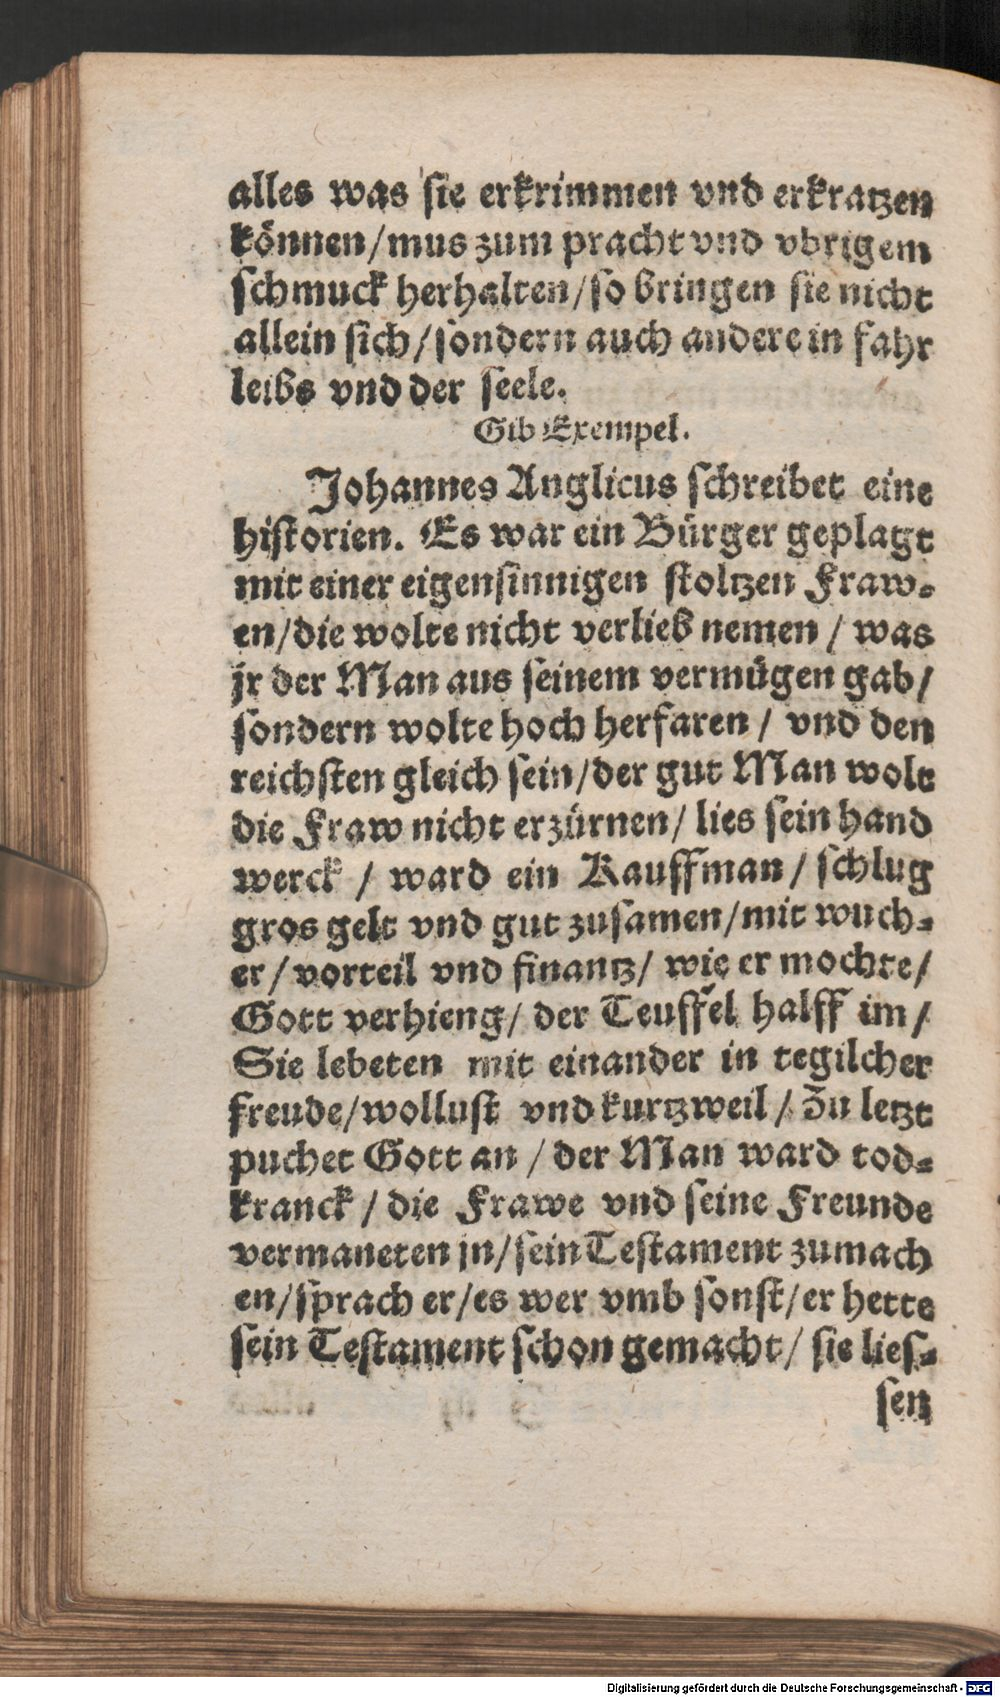 alles was sie erkrimmen vnd erkratzen
können/mus zum pracht vnd vbrigem
schmuck herhalten/so bringen sie nicht
allein sich/sondern auch andere in fahr
leibs vnd der seele.
Gib Exempel.
Johannes Anglicus schreibet eine
historien. Es war ein Bürger geplagt
mit einer eigensinnigen stoltzen Fraw-
en/die wolte nicht verlieb nemen / was
jr der Man aus seinem vermügen gab/
sondern wolte hoch herfaren / vnd den
reichsten gleich sein/der gut Man wolt
die Fraw nicht erzürnen/ lies sein hand
werck / ward ein Kauffman / schlug
gros gelt vnd gut zusamen/mit wuch-
er / vorteil vnd finantz/ wie er mochte/
Gott verhieng/ der Teuffel halff im/
Sie lebeten mit einander in tegilcher
freude/wollust vnd kurtzweil / Zu letzt
puchet Gott an / der Man ward tod-
kranck / die Frawe vnd seine Freunde
vermaneten jn/sein Testament zumach
en/sprach er/es wer vmb sonst/er hette
sein Testament schon gemacht/ sie lies-
sen
Digitalisierung gefördert durch die Deutsche Forschungsgemeinschaft - DFG